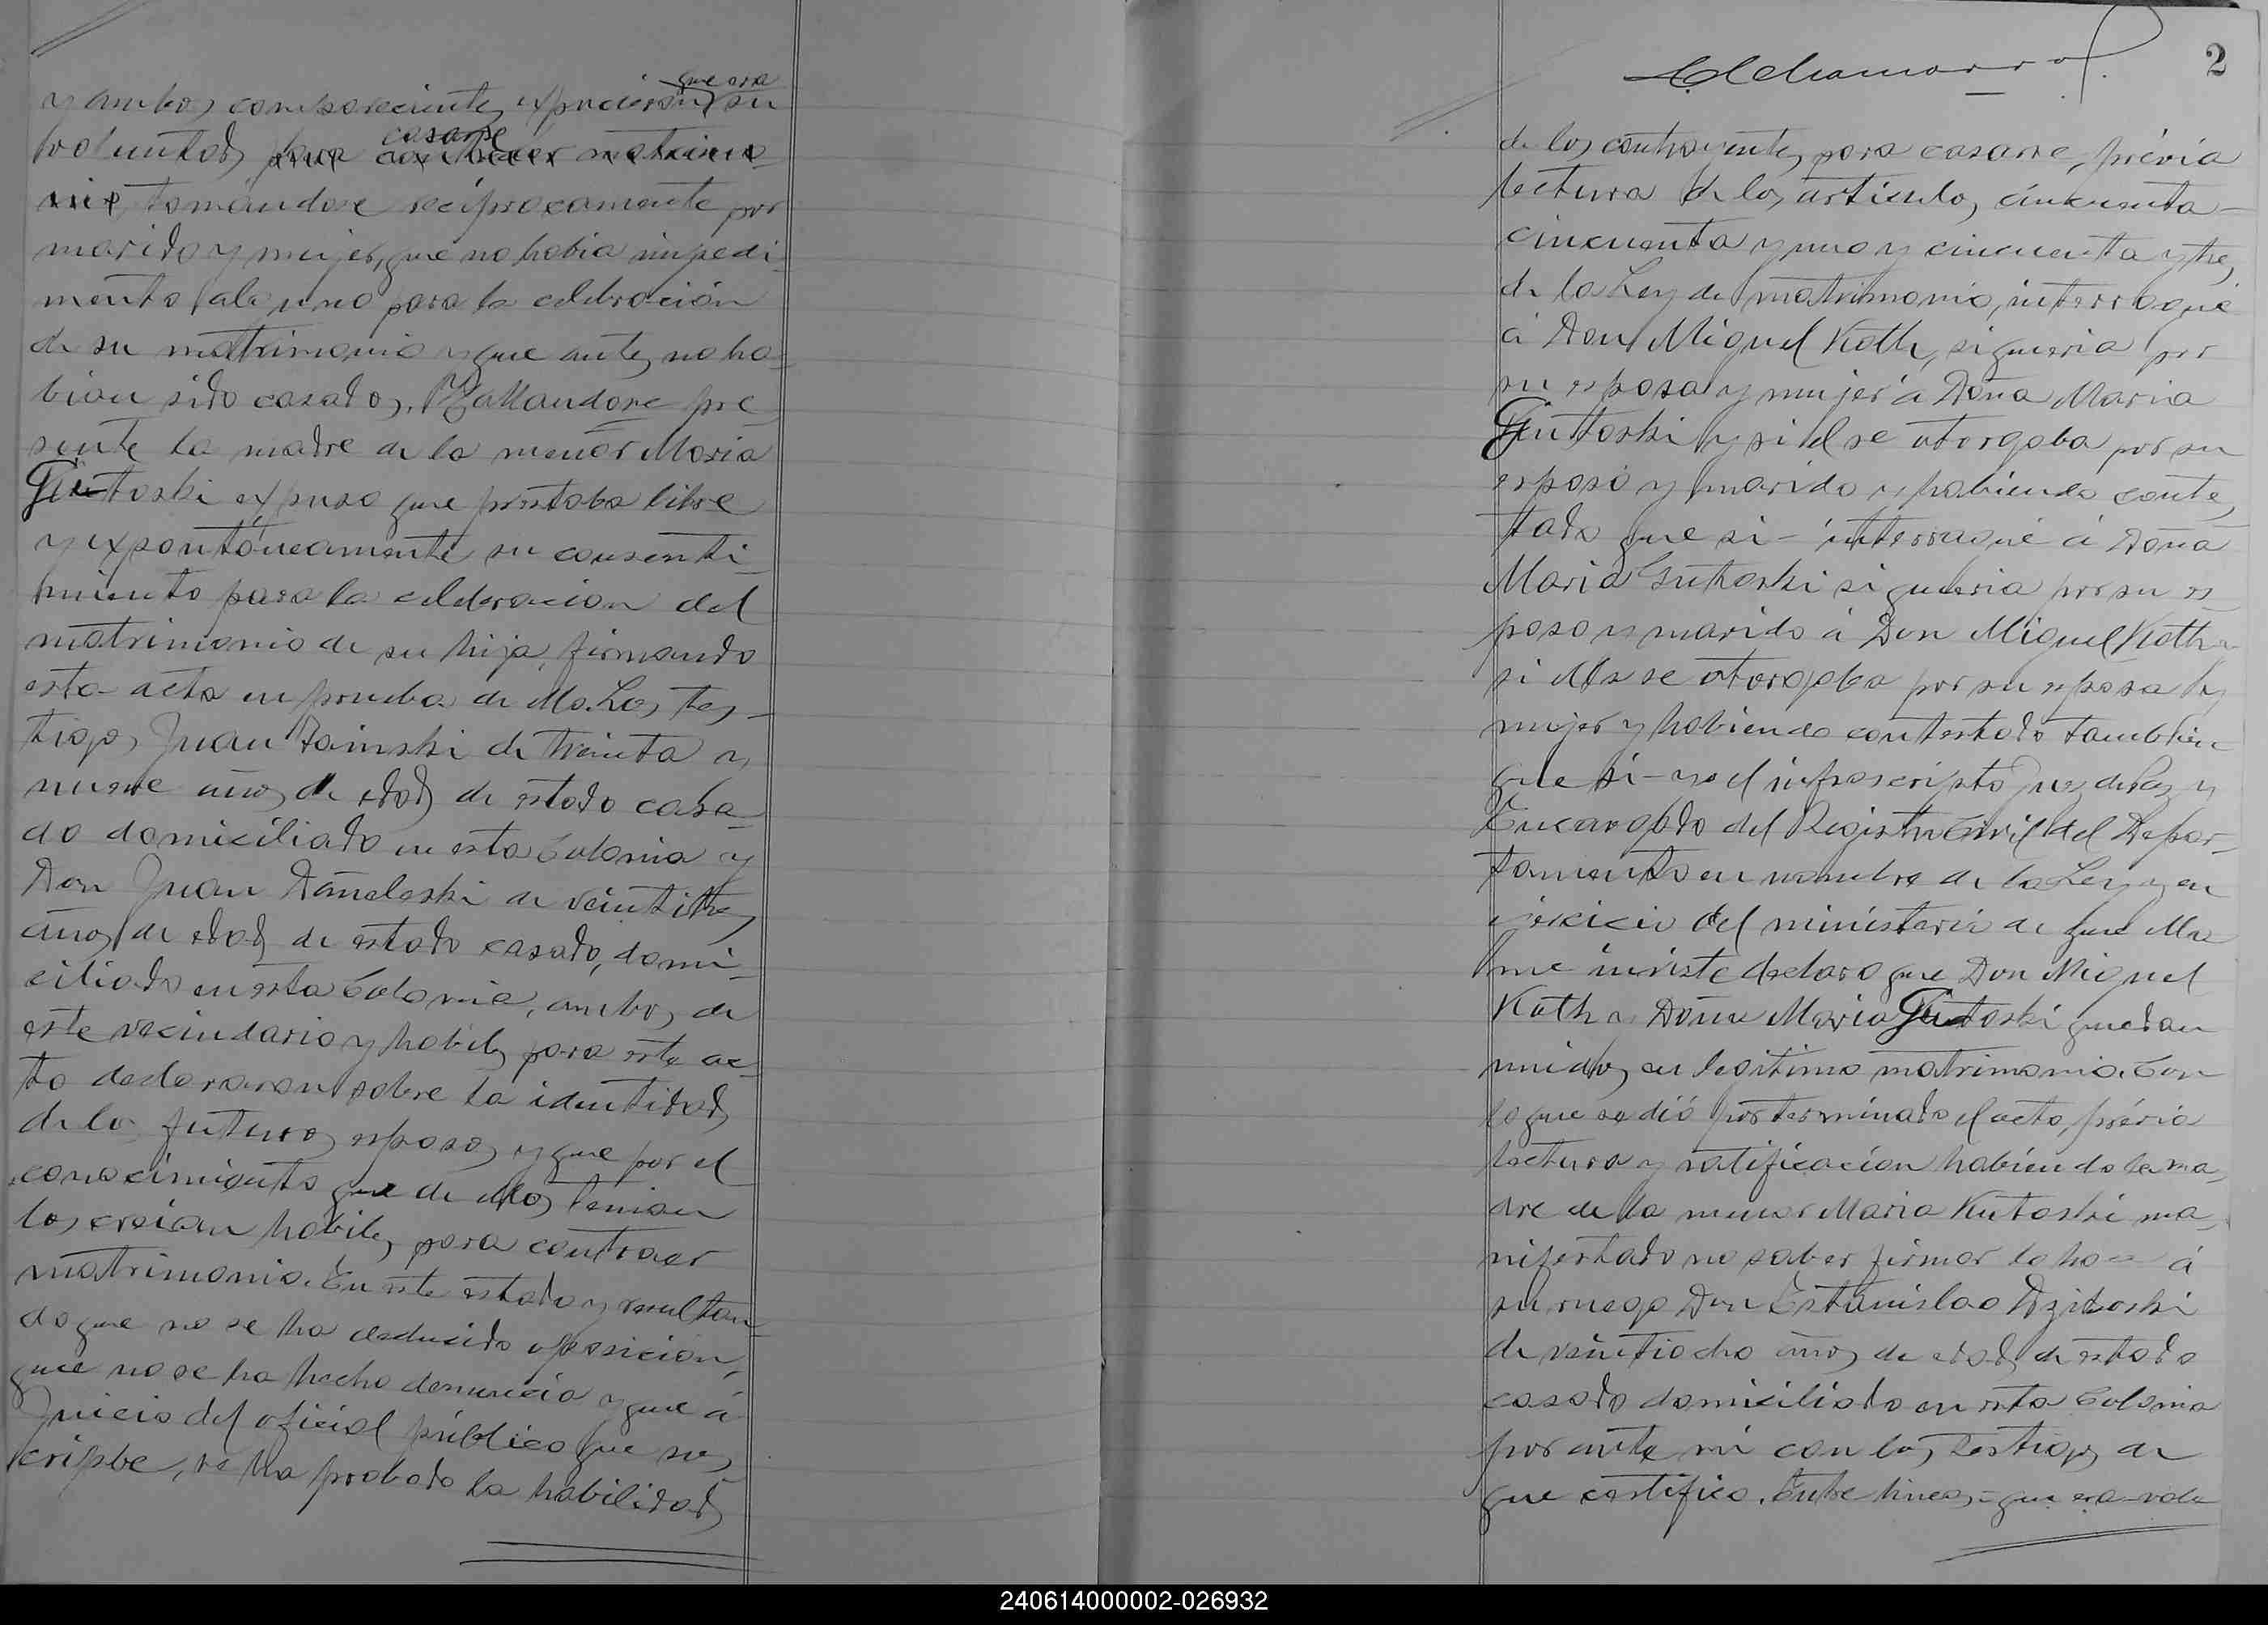 que era
y ambos comparecientes expusieron su
casarse
voluntad para contraer matrimo-
nio, tomándose recíprocamente por
marido y mujer, que no habia impedi-
mento alguno para la celebración
de su matrimonio y que antes no ha-
bian sido casados. Hallandose pre-
sente la madre de la menor Maria
Gutoski expuso que prestaba libre
y expontáneamente su consenti-
miento para la celebracion del
matrimonio de su hija, firmando
esta acta en prueba de ello. Los tes-
tigos Juan Dainski de treinta y
nueve años de edad de estado casa-
do domiciliado en esta Colonia y
Don Juan Dañeleski de veintitres
años de edad de estado casado, domi-
ciliado en esta Colonia, ambos de
este vecindario y habiles para este ac-
to declararon sobre la identidad
de los futuros esposos y que por el
conocimiento que de ellos tenian
los creian habiles para contraer
matrimonio. En este estado y resultan-
do que no se ha deducido oposicion,
que no se ha hecho denuncia y que á
Juicio del oficial público que sus-
cripbe, se ha probado la habilidad
2
de los contrayentes para casarse, prévia
lectura de los articulos cincuenta-
cincuenta y uno y cincuenta y tres
de la Ley de matrimonio, interrogué
á Don Miguel Koth, si queria por
su esposa y mujer á Doña Maria
Gutoski y si él se otorgaba por su
esposo y marido y habiendo contes-
tado que si - interrogué á Doña
Maria Gutoski si queria por su es-
poso y marido á Don Miguel Koth y
si ella se otorgaba por su esposa y
mujer y habiendo contestado tambien
que si - yo el infrascripto Juez de Paz y
Encargado del Registro Civil del Depar-
tamento en nombre de la Ley y en
ejercicio del ministerio de que ella
me inviste declaro que Don Miguel
Koth y Doña Maria Gutoski quedan
unidos en legitimo matrimonio. Con
lo que se dió por terminado el acto, prévia
lectura y ratificacion habiendo la ma-
dre de la menor Maria Kutoski ma-
nifestado no saber firmar lo hace á
su ruego Don Estanislao Dziboski
de veintiocho años de edad de estado
casado domiciliado en esta Colonia
por ante mi con los testigos de
que certifico. Entre lineas - que era - vale
240614000002-026932